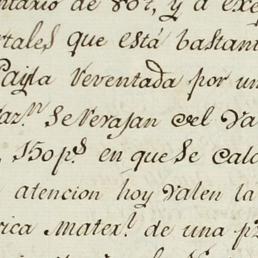 ntario de 807, y a exe
rtales que está bastant
Payla Veventada por un
raz.n Se Verajan del Va
, 150 p.s en que Se calc
atencion hoy Valen la
rica Matex.l de una p